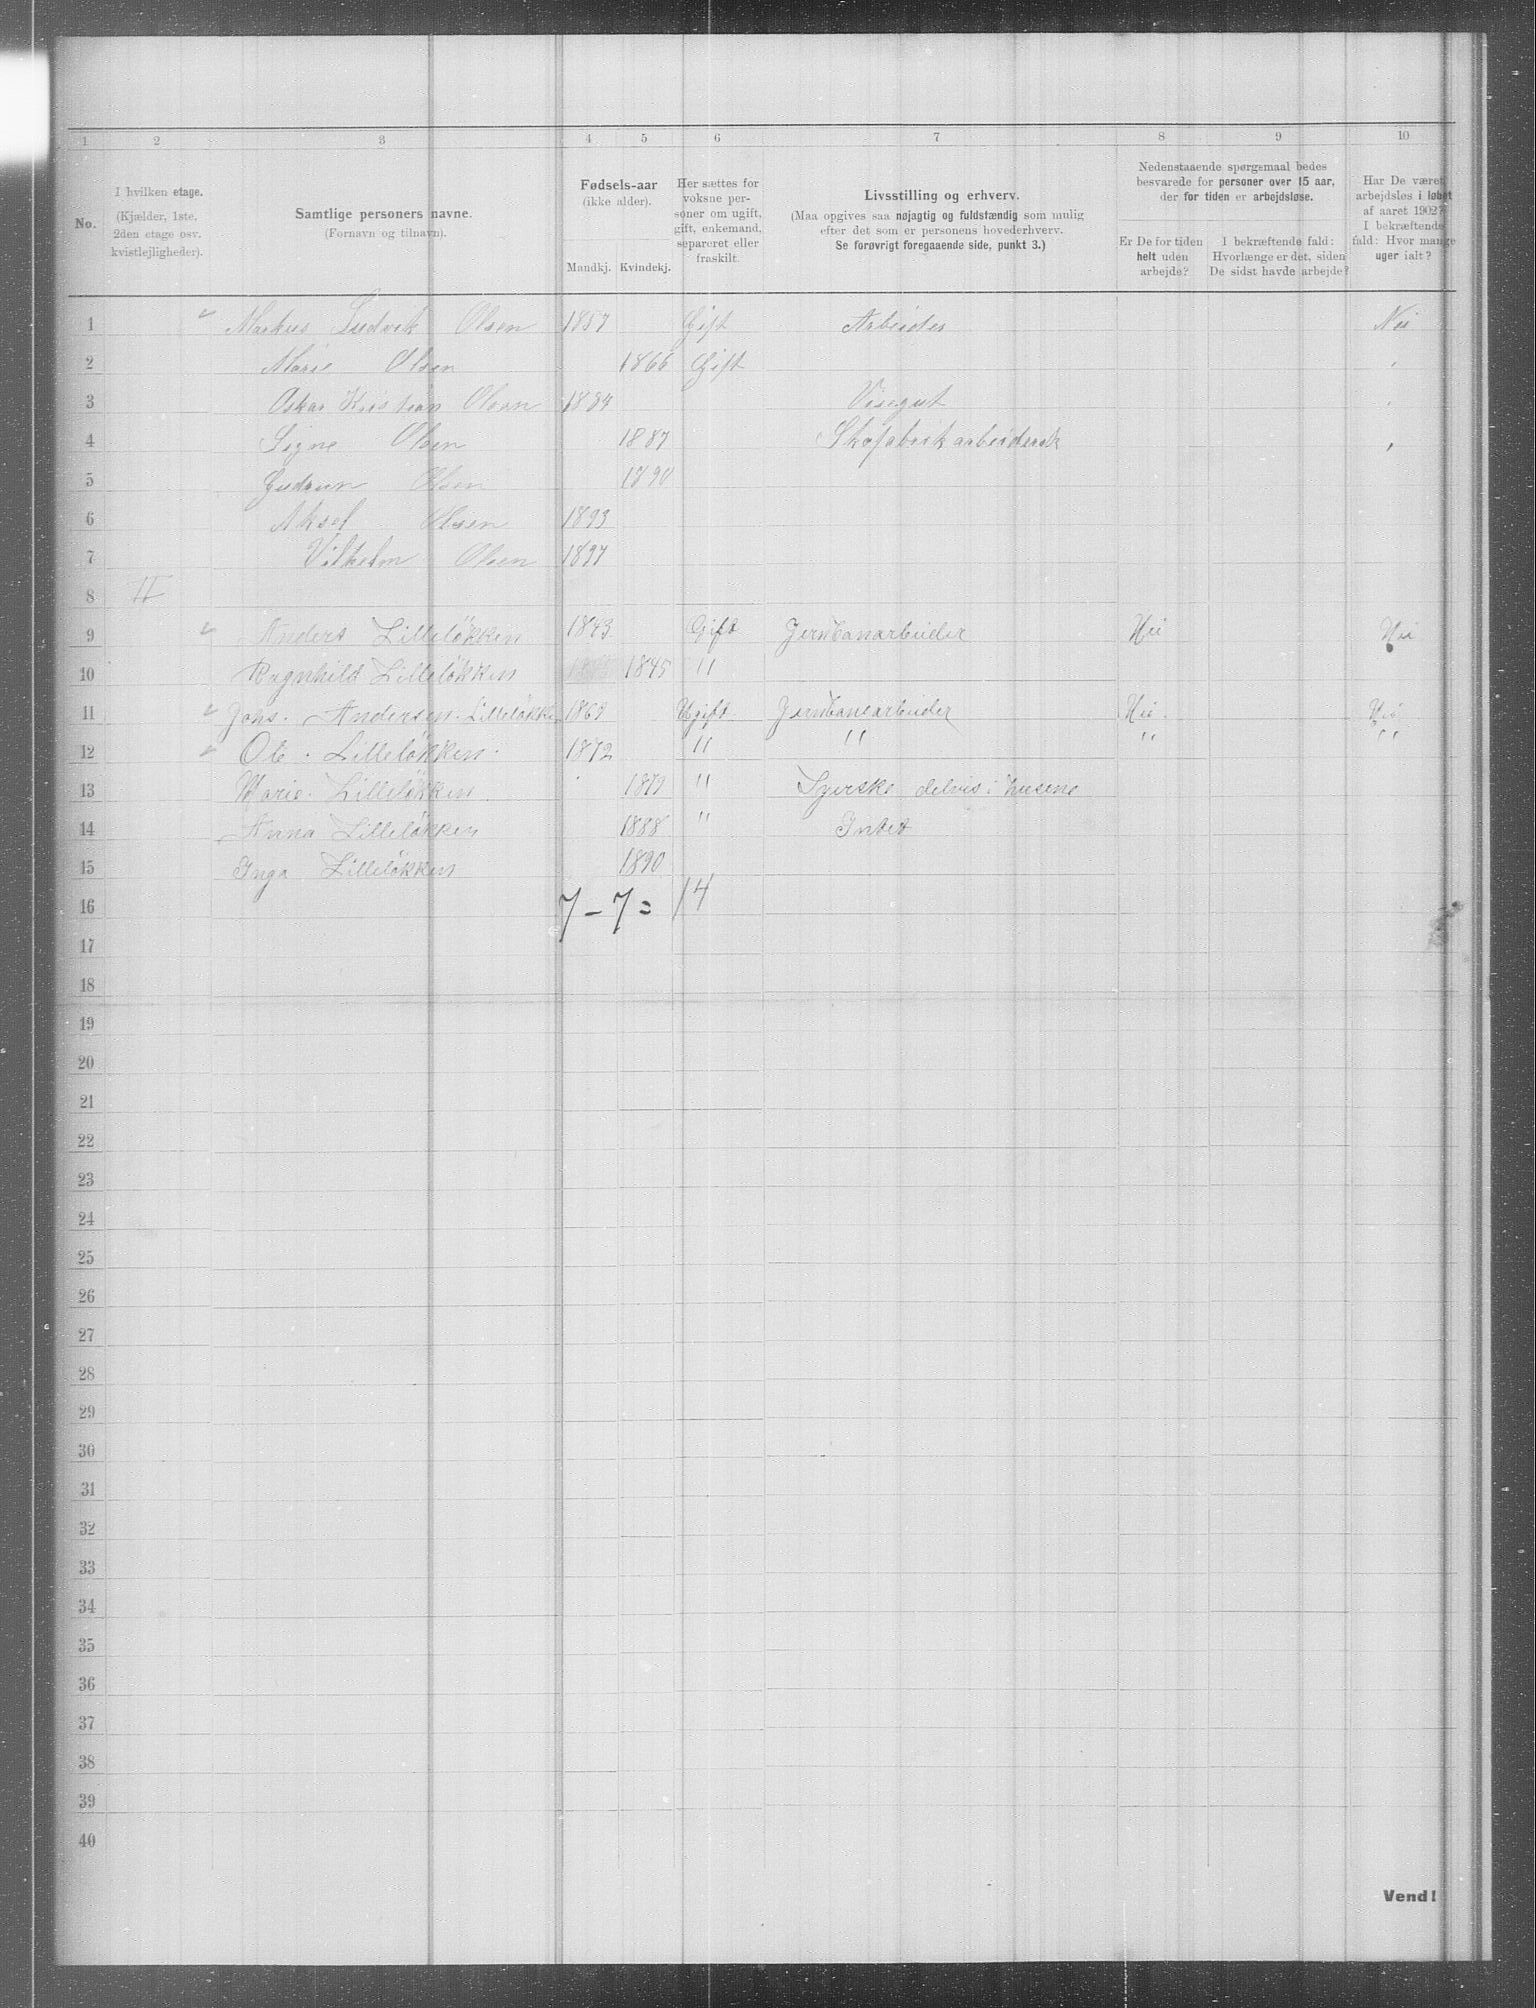 1 2 3 4 5 6 7 8 9 10
No.
I hvilken etage.
(Kjælder, 1ste,
2den etage osv.
kvistlejligheder).
Samtlige personers navne.
(Fornavn og tilnavn).
Fødsels-aar
(ikke alder).
Mandkj. Kvindekj.
Her sættes for
voksne per-
soner om ugift,
gift, enkemand,
separeret eller
fraskilt.
Livsstilling og erhverv.
(Maa opgives saa nøjagtig og fuldstændig som mulig
efter det som er personens hovederhverv.
Se forøvrigt foregaaende side, punkt 3.)
Nedenstaaende spørgsmaal bedes
besvarede for personer over 15 aar,
der for tiden er arbejdsløse.
Er De for tiden
helt uden
arbejde?
I bekræftende fald:
Hvorlænge er det, siden
De sidst havde arbejde?
Har De været
arbejdsløs i løbet
af aaret 1902?
I bekræftende
fald: Hvor mange
uger ialt?
1 Markus Ludvik Olsen 1857 Gift Arbeider Nei
2 Marie Olsen 1866 Gift
3 Oskar Kristian Olsen 1884 Visegut
4 Signe Olsen 1887 Skofabrikarbeidersk
5 Gudrun Olsen 1890
6 Aksel Olsen 1893
7 Vilhelm Olsen 1897
8 II
9 Anders Lilleløkken 1843 Gift Jernbanarbeider Nei Nei
10 Ragnhild Lilleløkken 1845 "
11 Johs. Andersen Lilleløkken 1869 Ugift Jernbanearbeider Nei Nei
12 Ole Lilleløkken 1872 " " " "
13 Marie Lilleløkken 1879 " Syerske delvis i husene
14 Anna Lilleløkken 1888 " Intet
15 Inga Lilleløkken 1890
16 7 - 7 = 14
17
18
19
20
21
22
23
24
25
26
27
28
29
30
31
32
33
34
35
36
37
38
39
40
Vend!